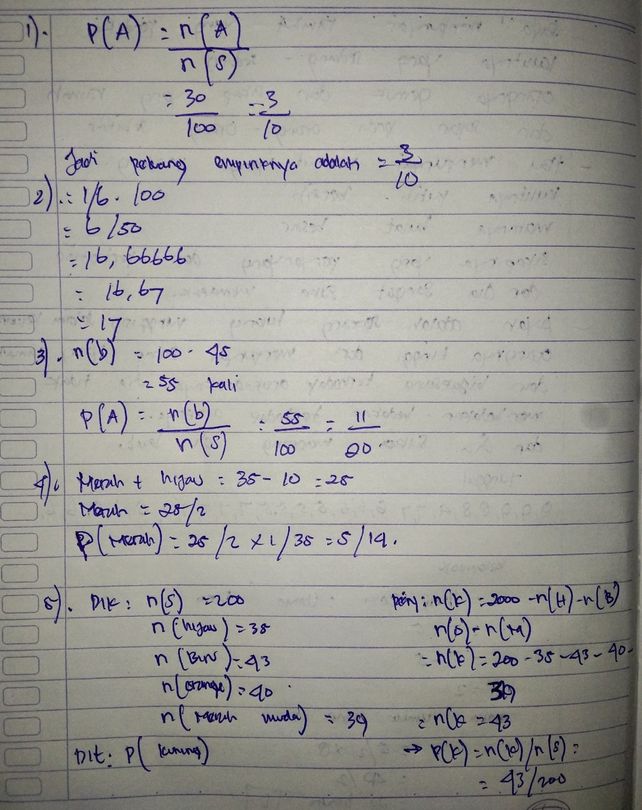 1). P(A) = n(A)
n(S)
= 30 = 3
100 10
Jadi peluang empiriknya adalah = 3
10
2). = 1/6 . 100
= 6/50
= 16,66666
= 16,67
= 17
3). n(b) = 100 - 45
= 55 kali
P(A) = n(b) = 55 = 11
n(S) 100 20
4). Merah + hijau = 35 - 10 = 25
Merah = 25/2
P(Merah) = 25/2 x 1/35 = 5/14.
5). Dik : n(S) = 200
n(hijau) = 35
n(Biru) = 43
n(orange) = 40
n(Merah muda) = 39
Dit : P(kuning)
Peny : n(k) = 2000 - n(H) - n(B)
n(O) - n(M)
= n(k) = 200 - 35 - 43 - 40 -
39
= n(k = 43
→ P(k) = n(k) / n(S) =
= 43/200